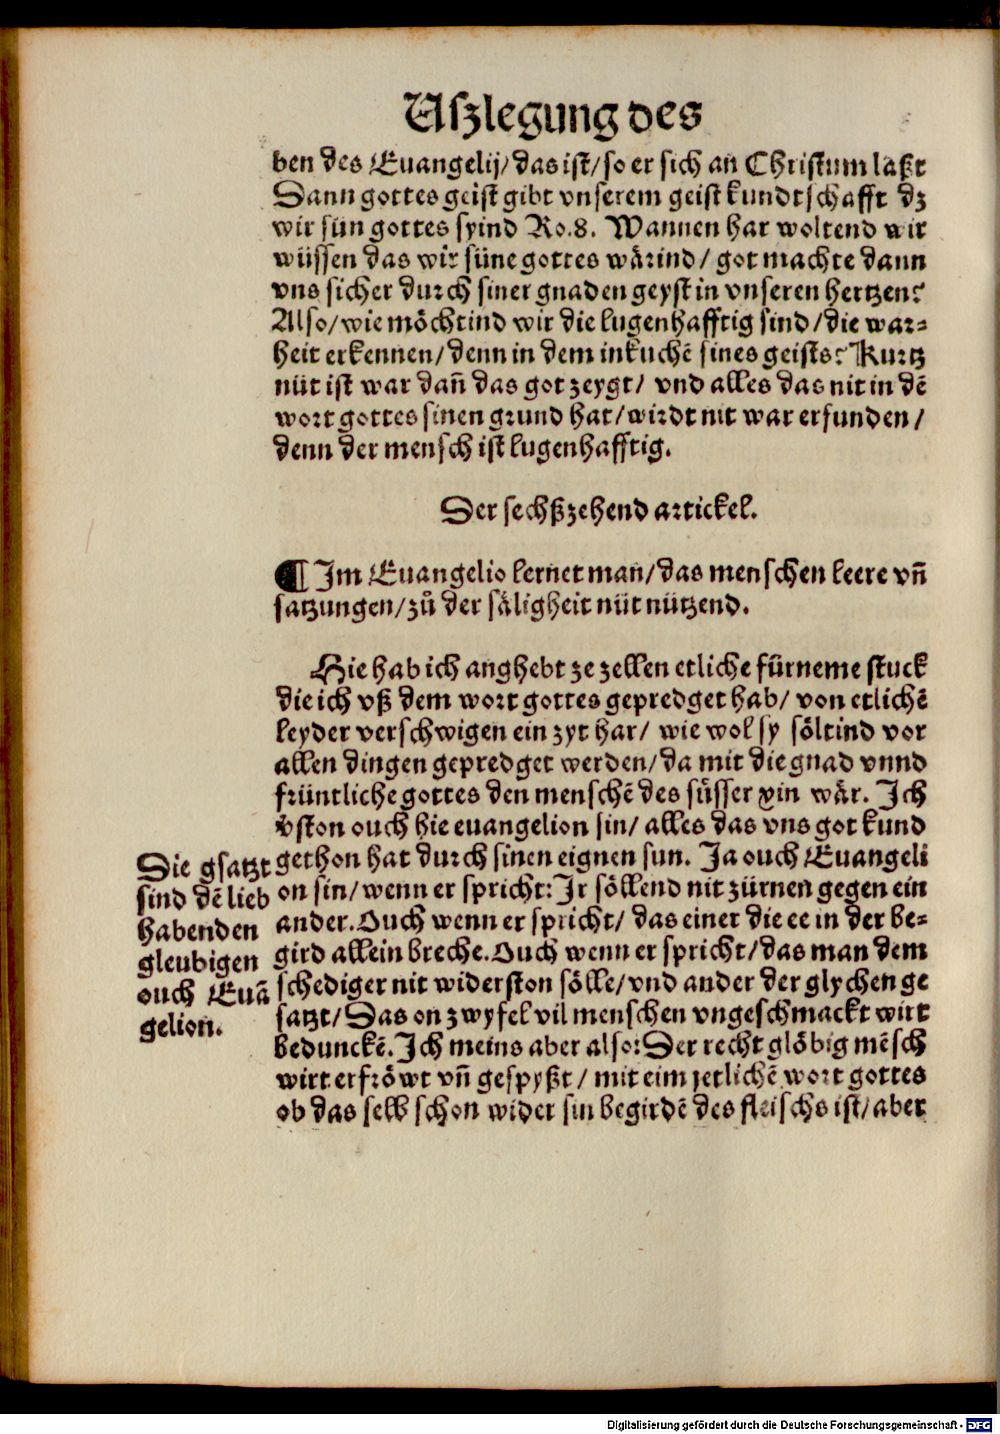 Uſzlegung des
ben des Euangelij/das iſt/ſo er ſich an Chriſtum laßt
Dann gottes geiſt gibt vnſerem geiſt kundtſchafft dz
wir ſün gottes ſyind Ro.8. Wannen har woltend wir
wüſſen das wir ſüne gottes wärind/ got machte dann
vns ſicher durch ſiner gnaden geyſt in vnſeren hertzen?
Alſo/wie möchtind wir die lugenhafftig ſind/die war-
heit erkennen/denn in dem inkuchē ſines geiſts? Kurtz
nüt iſt war dañ das got zeygt/ vnd alles das nit in dē
wort gottes ſinen grund hat/wirdt nit war erfunden/
denn der menſch iſt lugenhafftig.
Der ſechßzehend artickel.
¶ Im Euangelio lernet man/das menſchen leere vñ
ſatzungen/zů der ſäligheit nüt nützend.
Hie hab ich anghebt ze zellen etliche fürneme ſtuck
die ich vß dem wort gottes gepredget hab/ von etlichē
leyder verſchwigen ein zyt har/ wie wol ſy ſöltind vor
allen dingen gepredget werden/da mit die gnad vnnd
früntliche gottes den menſchē des ſüſſer yin wär. Ich
vſton ouch hie euangelion ſin/ alles das vns got kund
gethon hat durch ſinen eignen ſun. Ja ouch Euangeli
on ſin/wenn er ſpricht: Ir ſöllend nit zürnen gegen ein
ander. Ouch wenn er ſpricht/ das einer die ee in der be-
gird allein breche. Ouch wenn er ſpricht/das man dem
ſchediger nit widerſton ſölle/vnd ander der glychen ge
ſatzt/Das on zwyfel vil menſchen vngeſchmackt wirt
beduncкē. Ich meins aber alſo: Der recht glöbig mēſch
wirt erfröwt vñ geſpyßt/ mit eim ietlichē wort gottes
ob das ſelb ſchon wider ſin begirdē des fleiſchs iſt/aber
Die gſatzt
ſind dē lieb
habenden
gleubigen
ouch Euā
gelion.
Digitalisierung gefördert durch die Deutsche Forschungsgemeinschaft - DFG